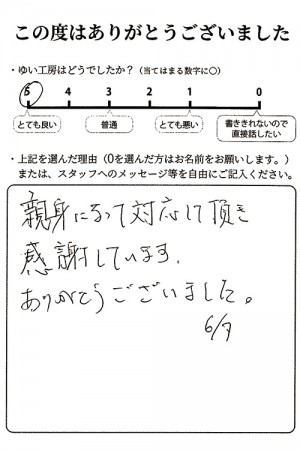 この度はありがとうございました
・ゆい工房はどうでしたか？（当てはまる数字に○）
5 4 3 2 1 0
とても良い 普通 とても悪い 書ききれないので直接話したい
・上記を選んだ理由（0を選んだ方はお名前をお願いします。）
または、スタッフへのメッセージ等を自由にご記入ください。
親身になって対応して頂き
感謝しています．
ありがとうございました。